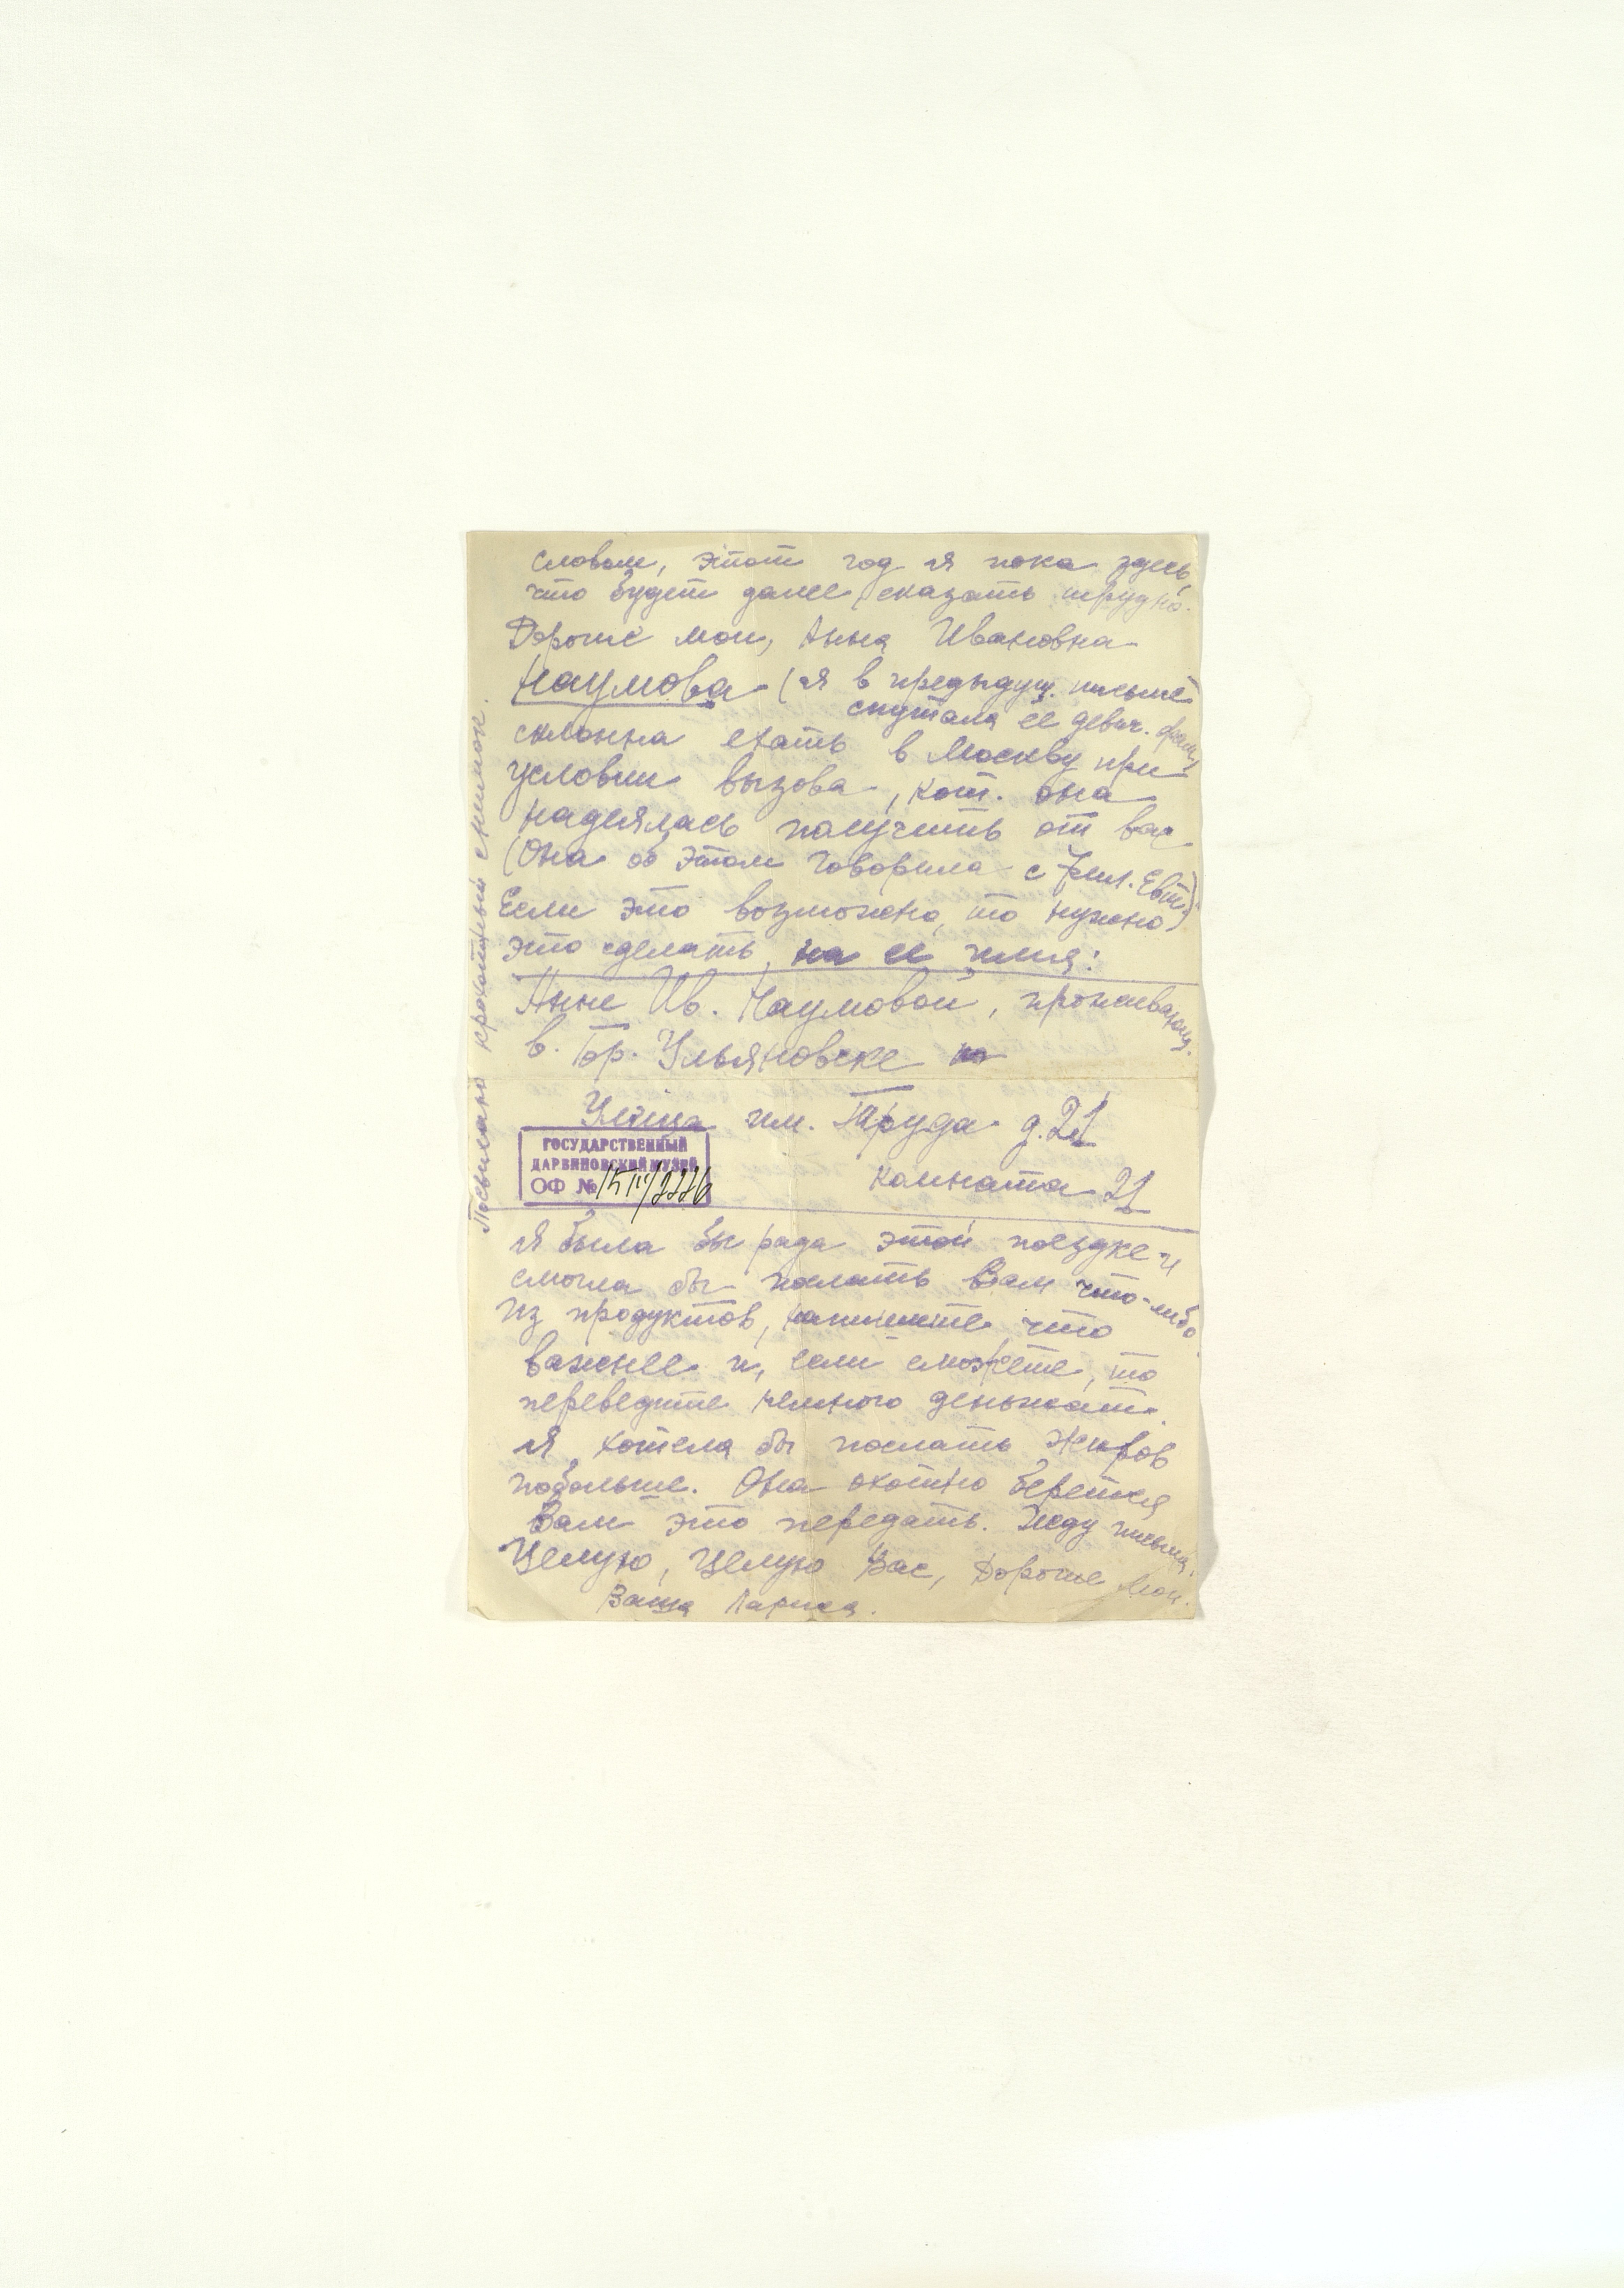 словом, этот год я пока здесь,
что будет далее сказать трудно.
Дорогие мои, Анна Ивановна
Наумова (я в предыдущ. письме
спутала ее девич. фам.)
склонна ехать в Москву при
условии вызова, кот. она
надеялась получить от вас
(Она об этом говорила с Фил. Евт.)
Если это возможно, то нужно
это сделать на ее имя:
Анне Ив. Наумовой, проживающ.
в. Гор. Ульяновске
Улица им. Труда д. 21
ГОСУДАРСТВЕННЫЙ
ДАРВИНОВСКИЙ МУЗЕЙ
ОФ №
комната 21
Я была бы рада этой поездке и
смогла бы послать Вам что-либо
из продуктов, напишите что
важнее и, если сможете, то
переведите немного деньжат.
Я хотела бы послать жиров
побольше. Она охотно берется
Вам это передать. Жду письма.
Целую, целую Вас, Дорогие Мои.
Ваша Лариса.
Посылаю крохотный снимок.